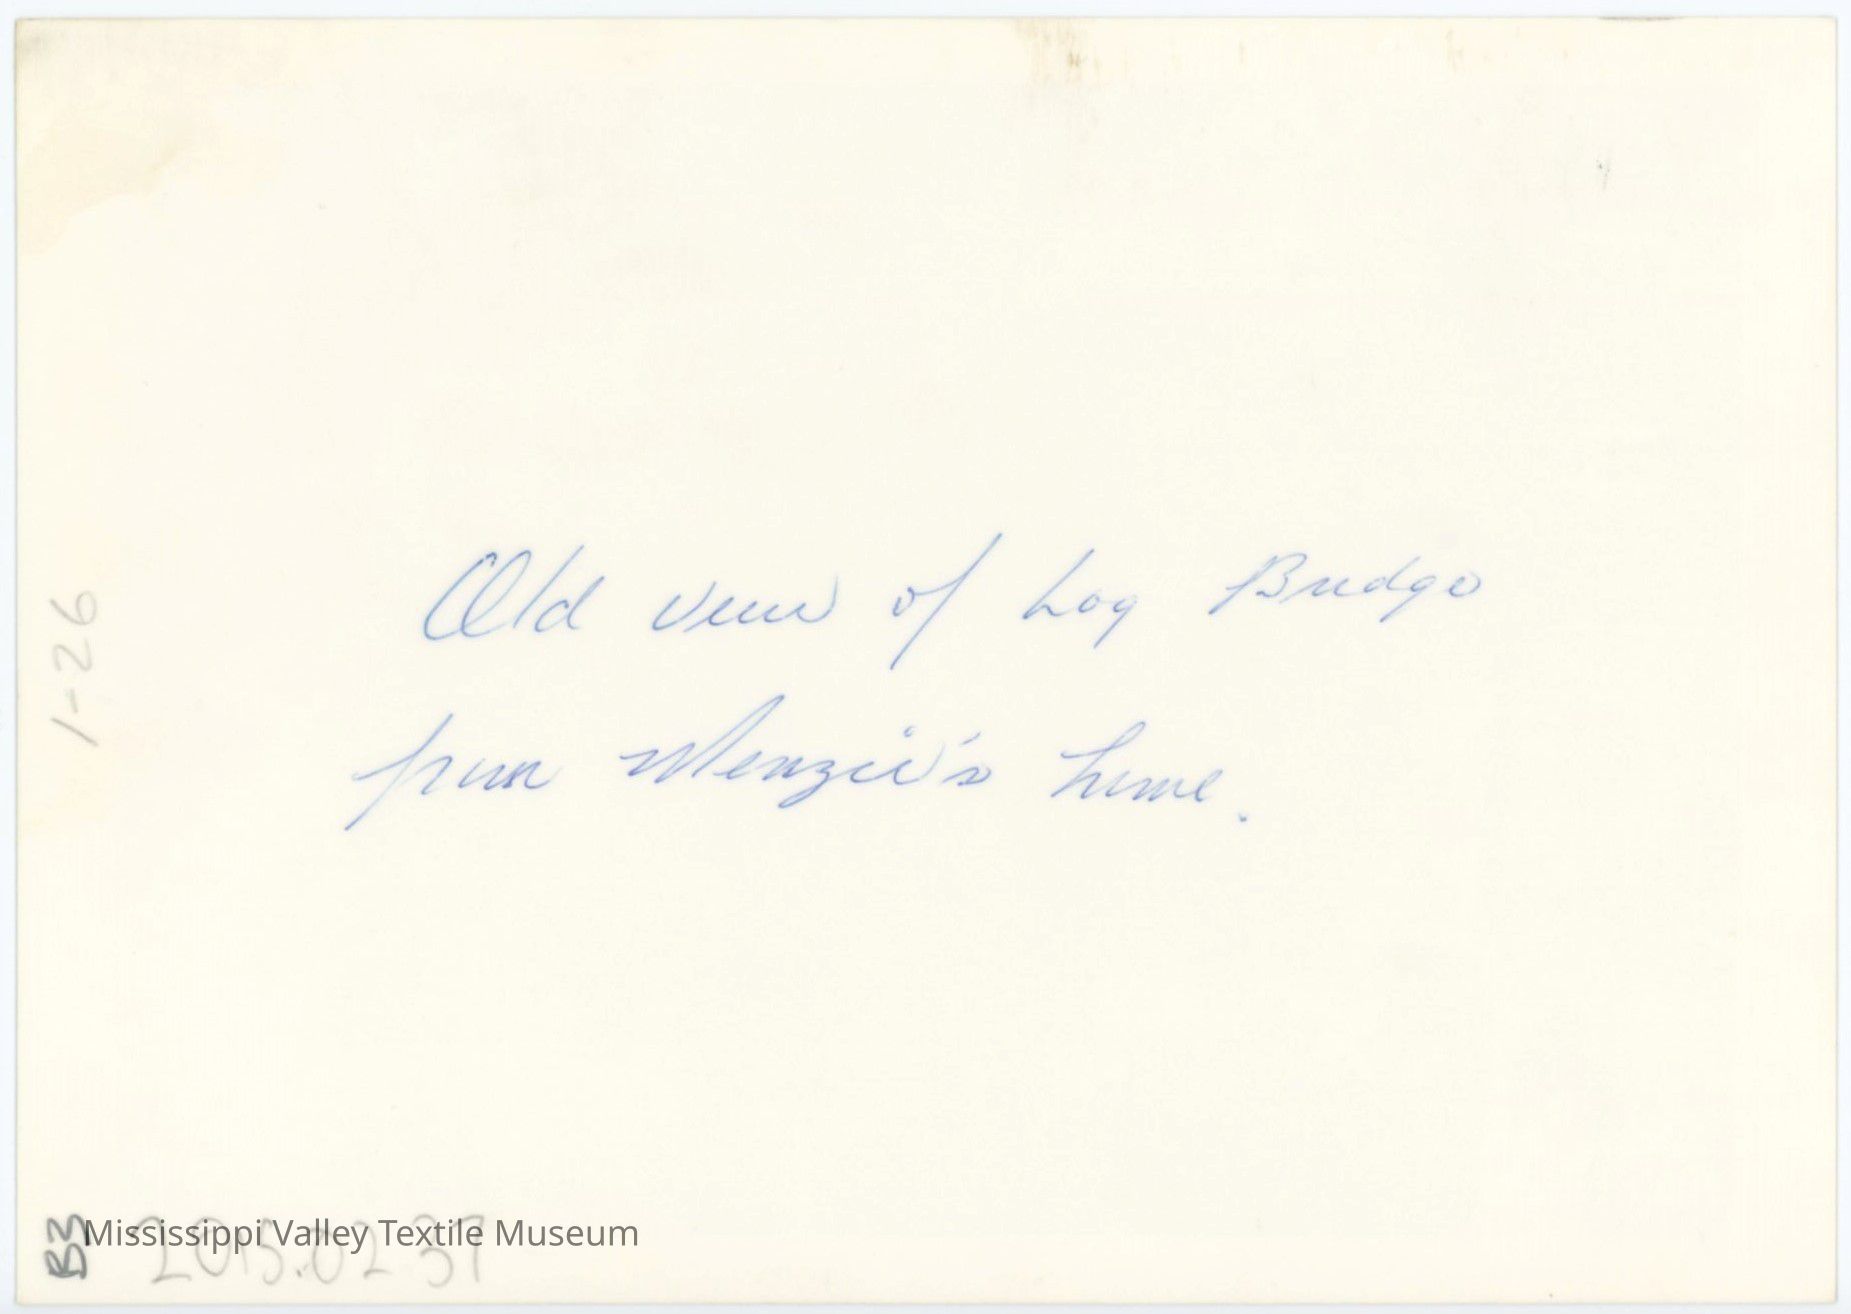 Old view of Log Bridge
from Menzie's home.
1-26
B3
Mississippi Valley Textile Museum
2015.02 37